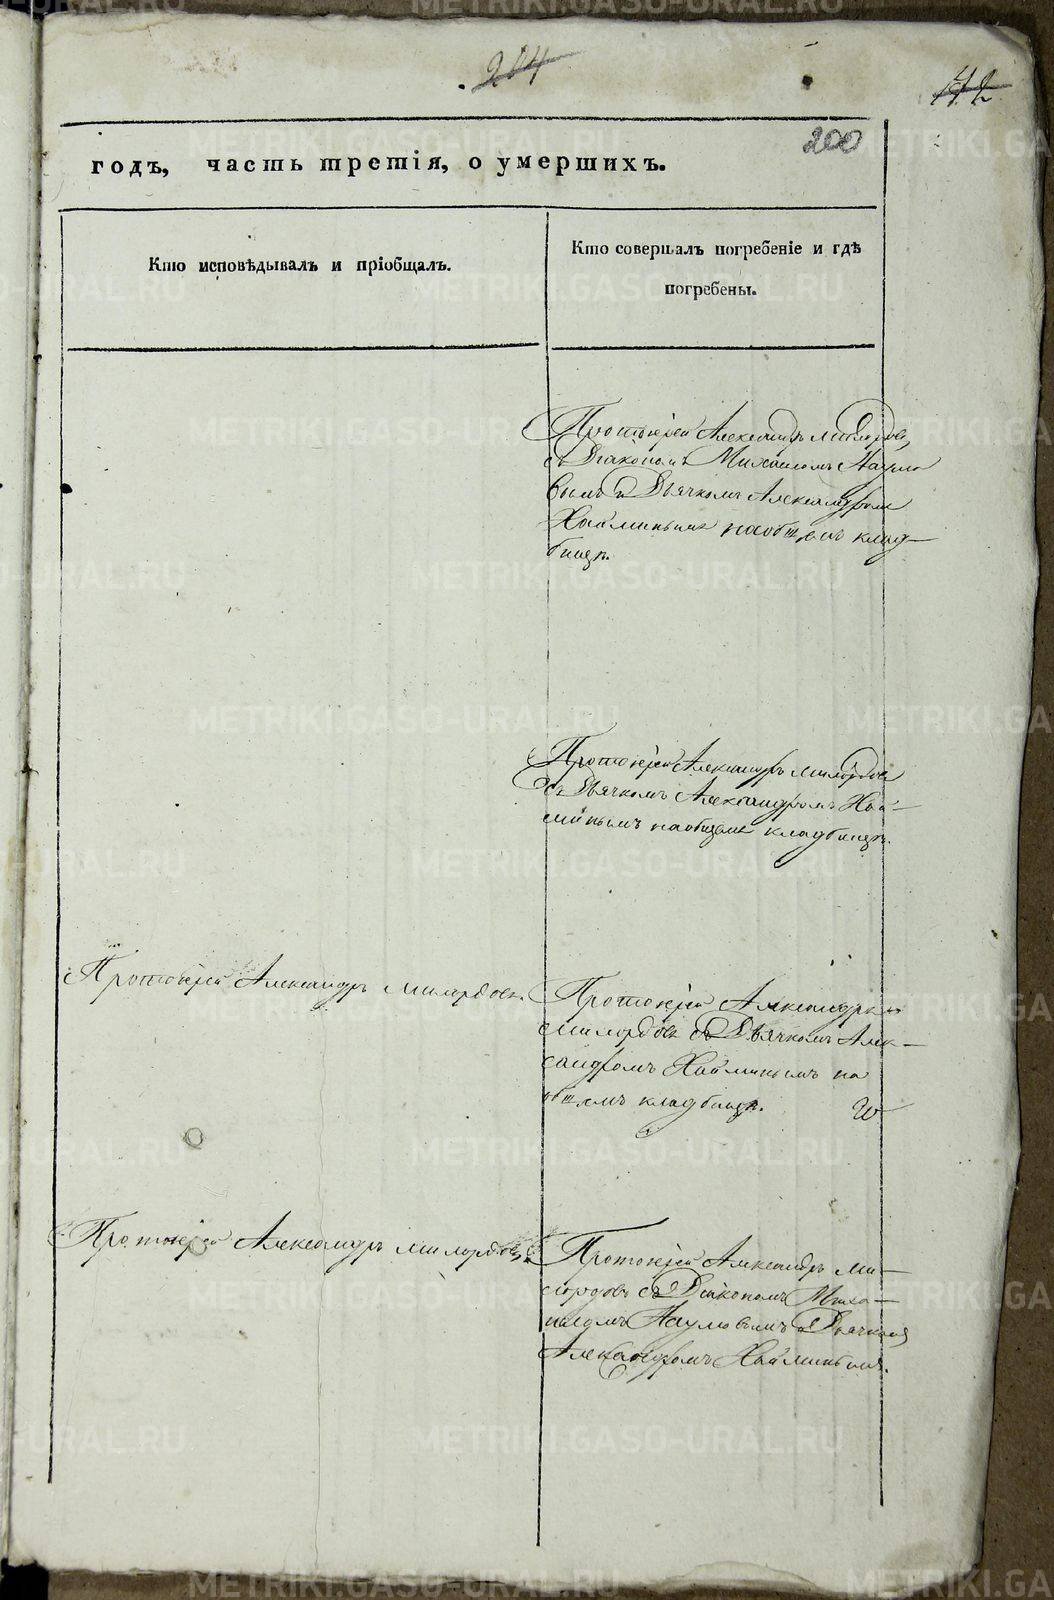 204
42
200
годъ, часть третія, о умершихъ.
Кто исповѣдывалъ и пріобщалъ.
Кто совершалъ погребеніе и гдѣ
погребены.
Протоіерей Александръ Милордовъ
съ Діакономъ Михаиломъ Наумо
вымъ и Дьячкомъ Александромъ
на общемъ клад-
бищѣ.
Протоіерей Александръ Милордовъ
съ Дьячкомъ Александромъ Хай-
минымъ на общемъ кладбищѣ.
Протоіерей Александръ Милордовъ.
Протоіерей Александръ
Милордовъ съ Дьячкомъ Алек-
сандромъ Хайминымъ на
общемъ кладбищѣ.
Протоіерей Александръ Милордовъ
Протоіерей Александръ Ми-
лордовъ съ Діакономъ Миха-
иломъ Наумовымъ и Дьячкомъ
Александромъ Хайминымъ.
METRIKI.GASO-URAL.RU